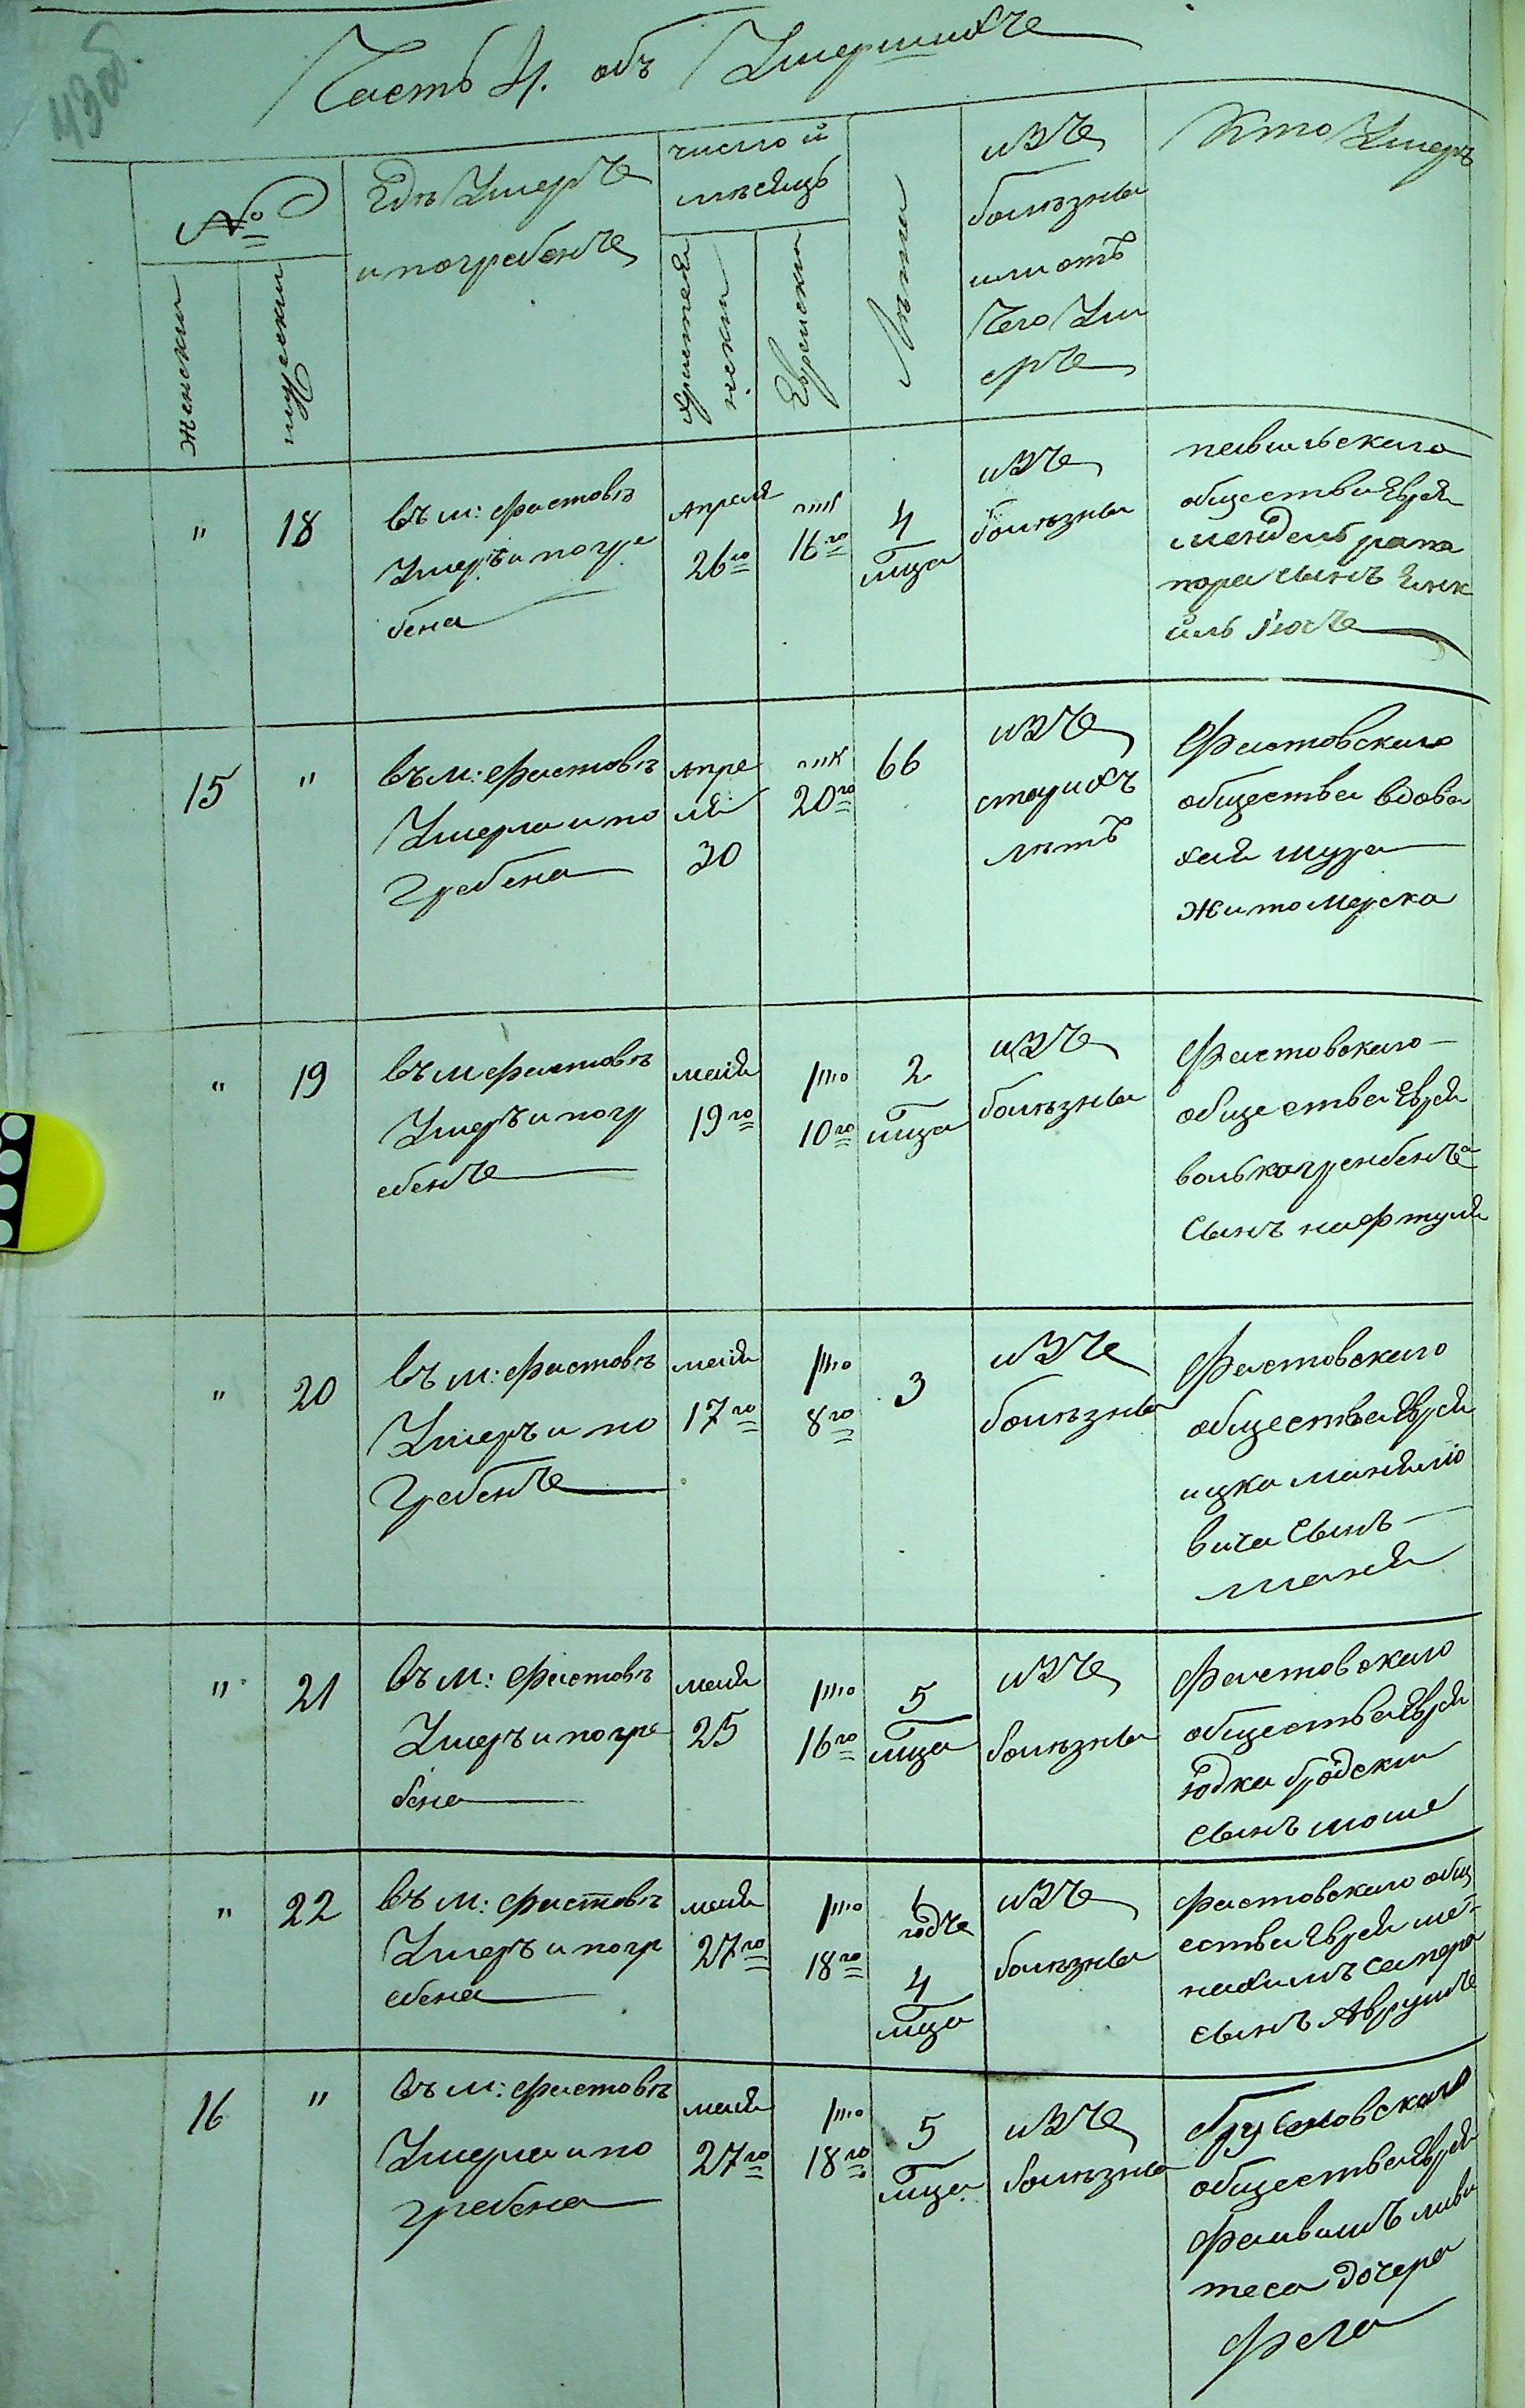 43об.
Часть 4. объ Умершихъ
№
женски
мужески
Гдѣ Умеръ
и погребенъ
число и
мѣсяцъ
християн
нски
Еврейски
Лѣта
изъ
болѣзны
или отъ
Чего Уми
еръ
Кто Умеръ
" 18
въ м: Фастовѣ
Умеръ и погре
бена
Апреля
26го
אייר
16го
4
мца
изъ
болѣзны
общества Еврей
мендель рапа
пора сынъ Янк
15 "
въ м: Фастовѣ
Умерла и по
гребена
Апре
ля
30
אייר
20го
66
изъ
старихъ
лѣтъ
Фастовского
общества вдова
хая шура
Житомерска
" 19
въ м Фастовѣ
Умеръ и погр
ебенъ
мая
19го
סיון
10го
2
мца
изъ
болѣзны
Фастовского
общества Еврей
сынъ нафтуля
" 20
въ м: Фастовѣ
Умеръ и по
гребенъ
мая
17го
סיון
8го
3
изъ
болѣзны
Фастовского
общества Еврей
ицка манялю
вича сынъ
маня
" 21
въ м: Фастовѣ
Умеръ и погре
бена
мая
25
סיון
16го
5
мца
изъ
болѣзны
Фастовского
общества Еврей
юдка бродски
сынъ моше
" 22
въ м: Фастовѣ
Умеръ и погр
ебена
мая
27го
סיון
18го
1
годъ
4
мца
изъ
болѣзны
Фастовского общ
ества Еврей ме
нахимъ сапера
сынъ Аврумъ
16 "
въ м: Фастовѣ
Умерла и по
гребена
мая
27го
סיון
18го
5
мца
изъ
болѣзны
общества Еврей
Фаивишъ ливи
теса дочера
Фега